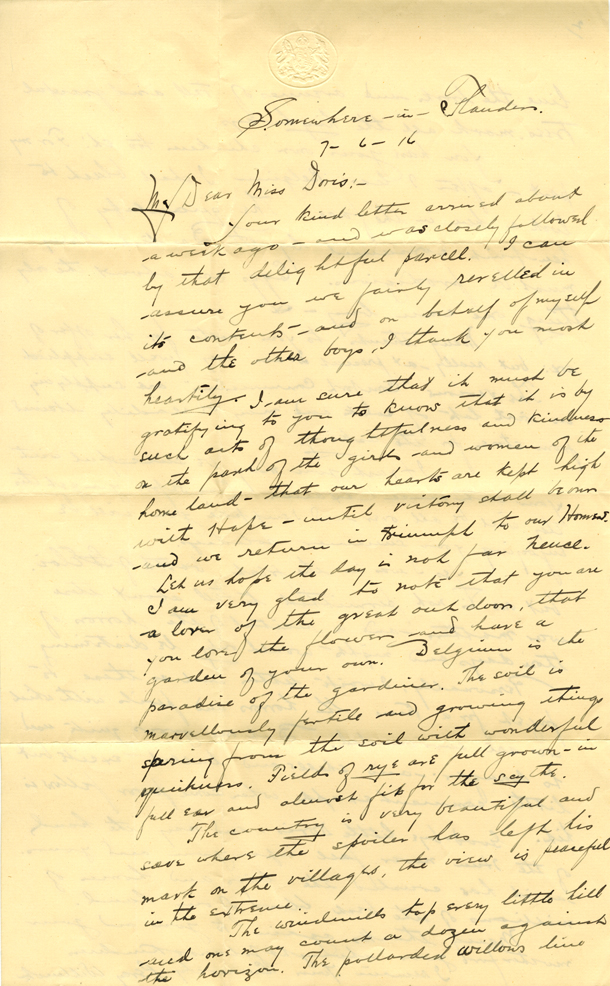 Somewhere - in - Flanders.
7 - 6 - 16
My Dear Miss Doris:-
Your kind letter arrived about
a week ago - and was closely followed
by that delightful parcel. I can
assure you we fairly revelled in
its contents - and on behalf of myself
and the other boys, I thank you most
heartily. I am sure that it must be
gratifying to you to know that it is by
such acts of thoughtfulness and kindness
on the part of the girls and women of the
home land - that our hearts are kept high
with Hope - until victory shall be our
and we return in triumph to our Homes.
Let us hope the day is not far hence.
I am very glad to note that you are
a lover of the great out door, that
you love the flowers and have a
garden of your own. Belgium is the
paradise of the gardiner. The soil is
marvellously fertile and growing things
spring from the soil with wonderful
quickness. Fields of rye are full grown - in
full ear and almost fit for the scythe.
The country is very beautiful and
save where the spoiler has left his
mark on the villages, the view is peaceful
in the extreme.
The windmills top every little hill
and one may count a dozen against
the horizon. The pollarded willows line